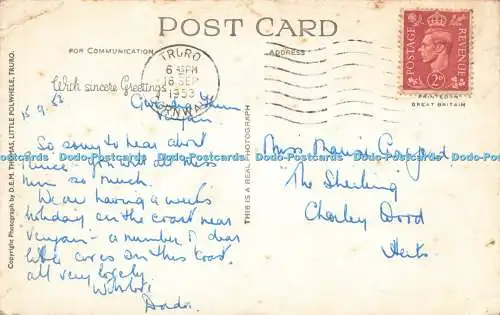 POST CARD
FOR COMMUNICATION
ADDRESS
With sincere Greetings
TRURO
6 PM
16 SEP
1953
CORNWALL
POSTAGE
REVENUE
2D
PRINTED IN
GREAT BRITAIN
15.9.53
Veryan.
So sorry to hear about
you will all miss
him so much.
We are having a weeks
holiday on the coast near
Veryan - a number of dear
little coves on this coast
all very lovely.
With love
Miss
"The
Chorley Wood
Herts
Copyright Photograph by D.E.M. THOMAS, LITTLE POLWHELE, TRURO.
THIS IS A REAL PHOTOGRAPH
Dodo-Postcards Dodo-Postcards Dodo-Postcards Dodo-Postcards